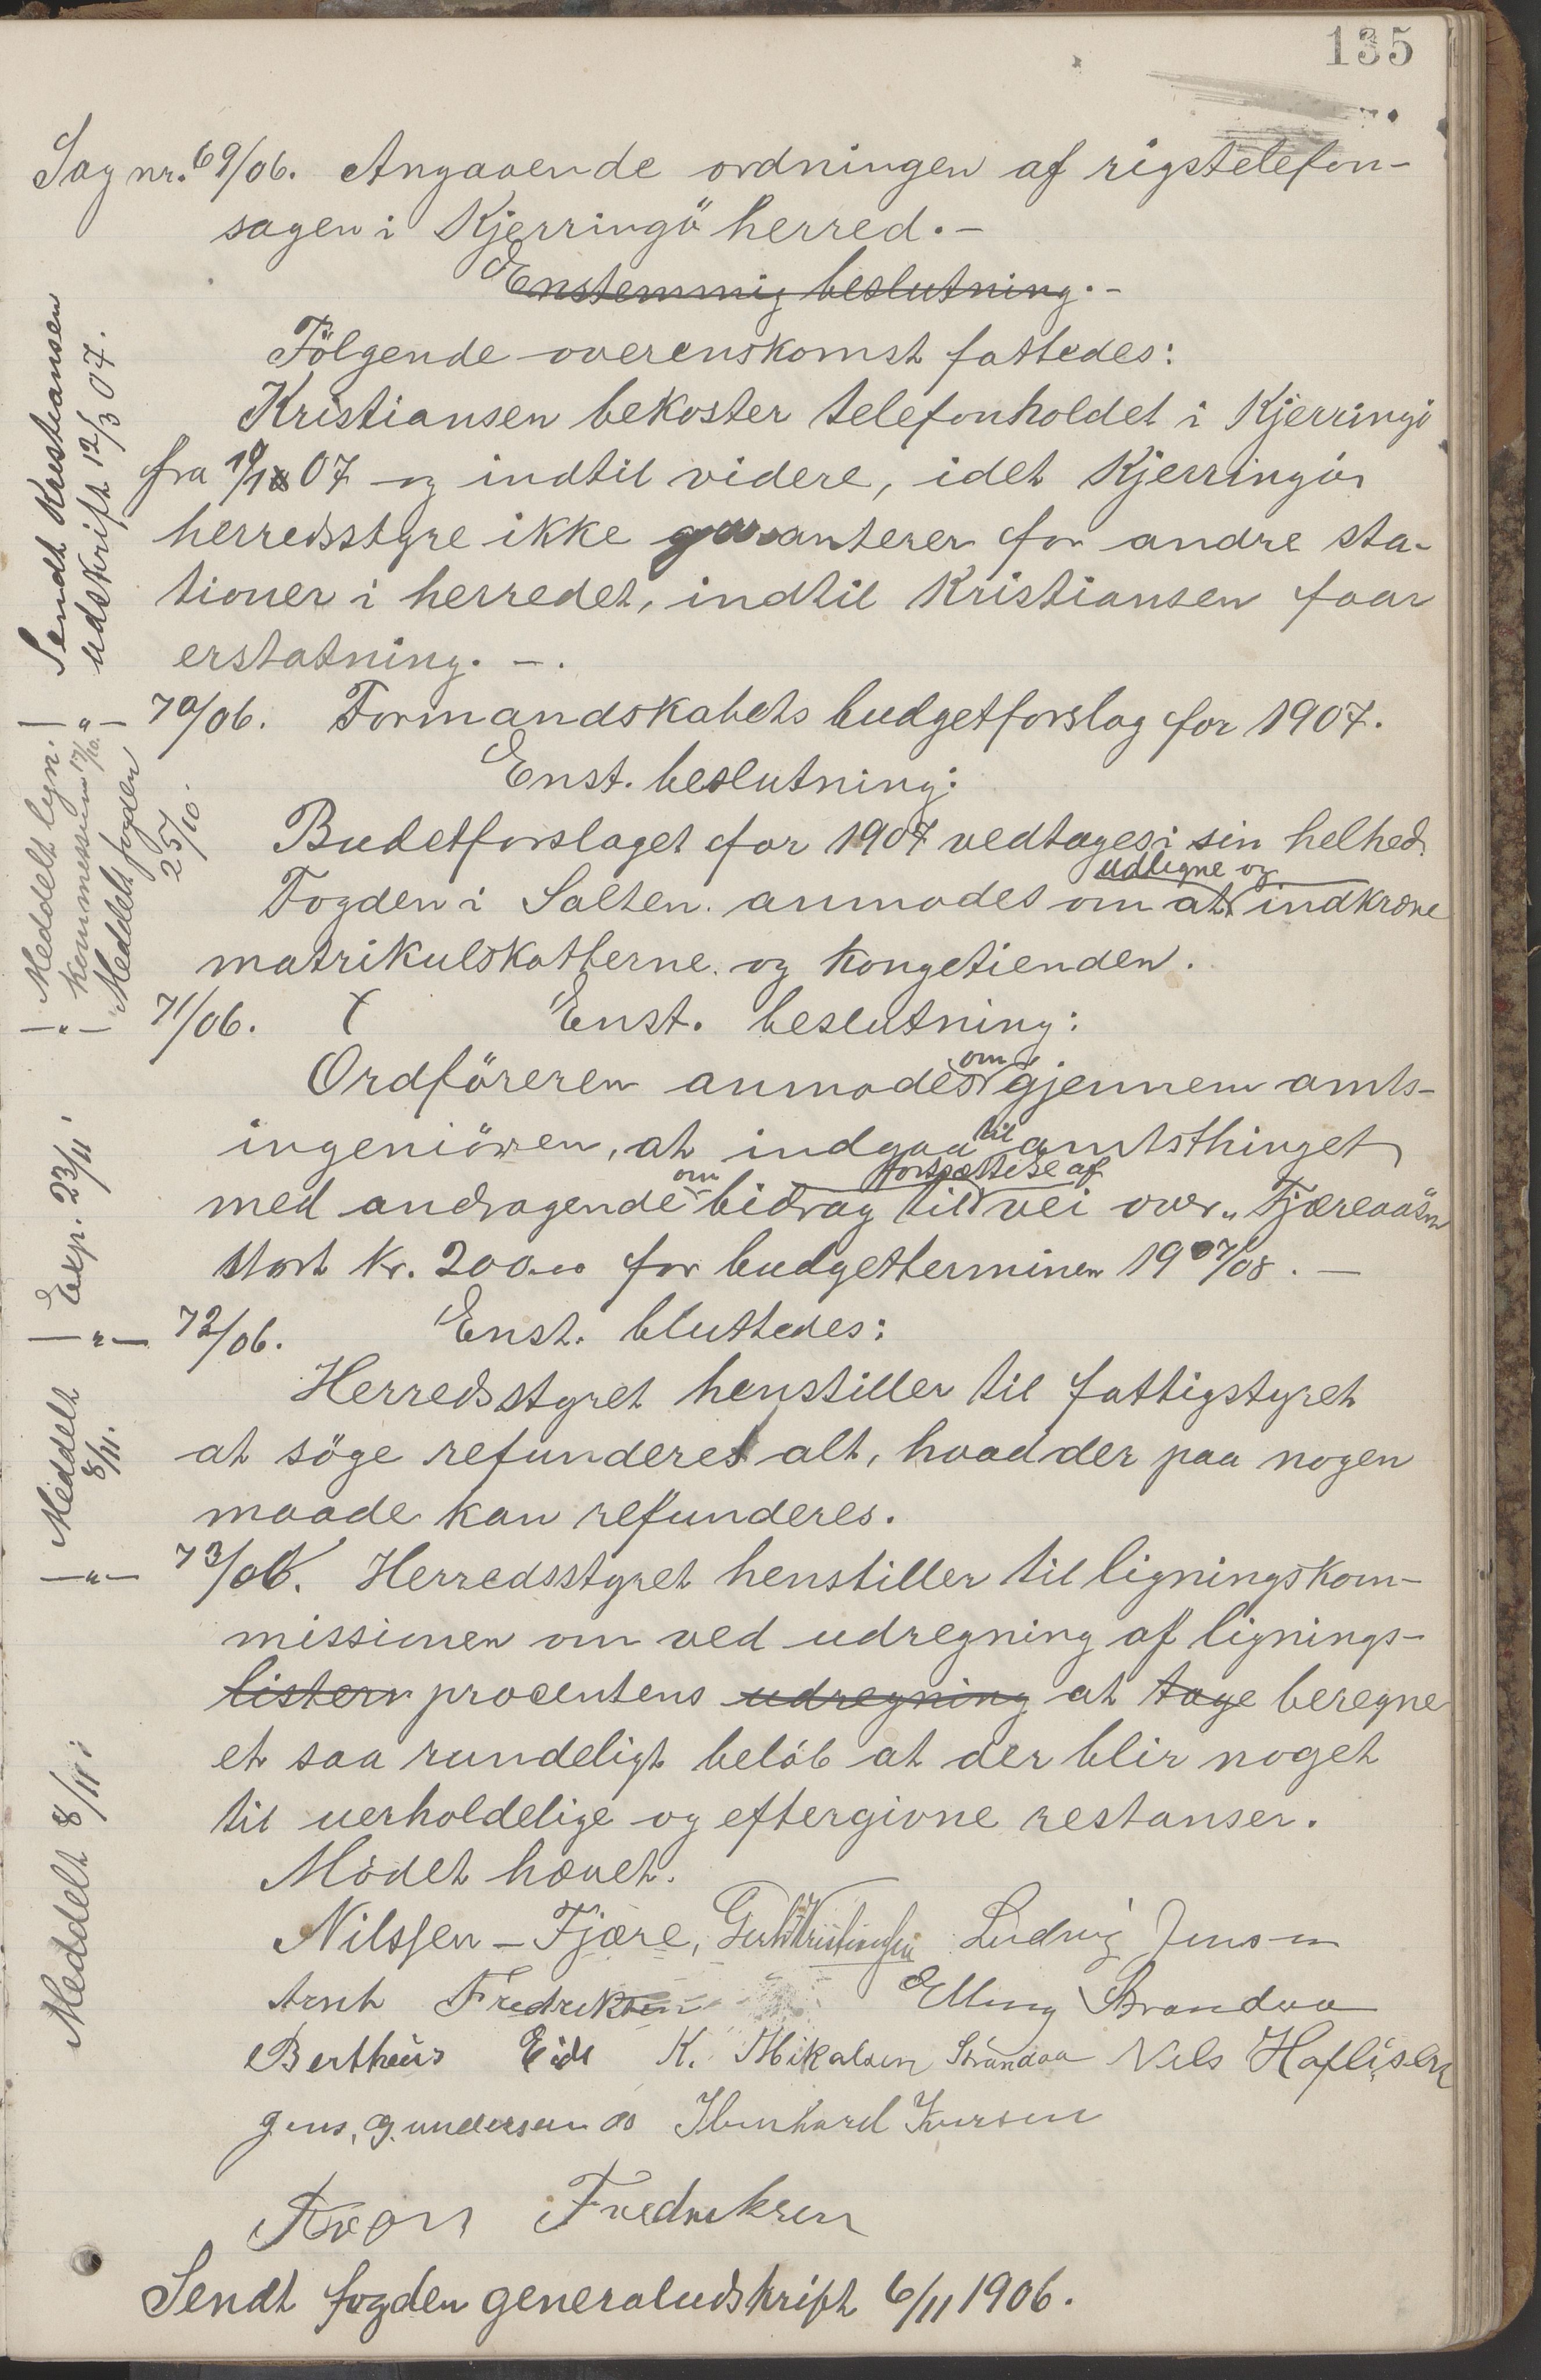 135
Sag nr. 69/06. Angaaende ordningen af rigstelefon-
sagen i Kjerringö herred. -
Enstemmig beslutning. -
Fölgende overenskomst fattedes:
Kristiansen bekoster telefonholdet i Kjerringö
fra 07 og indtil videre, idet Kjerringös
herredsstyre ikke garanterer for andre sta-
tioner i herredet, indtil Kristiansen faar
erstatning. -.
Sendt Kristiansen
udskrift 12/3 07.
-"- 70/06. Formandskabets budgetforslag for 1907.
Enst. beslutning:
Budetforslaget for 1907 vedtages i sin helhed.
udligne og
Fogden i Salten anmodes om at indkræve
matrikulskatterne og kongetienden.
Meddelt lign.
kommission 17/10.
Meddelt fogden
25/10.
-"- 71/06. Enst. beslutning:
om
Ordföreren anmodes gjennem amts-
til
ingeniören, at indgaa amtsthinget
om fortsættelse af
med andragende bidrag til vei over "Fjæreaasen
stort kr. 200.00 for budgetterminen 1907/08. -
Exp. 23/11.
-"- 72/06. Enst. bluttedes:
Herredsstyret henstiller til fattigstyret
at söge refunderet alt, hvad der paa nogen
maade kan refunderes.
Meddelt
8/11.
-"- 73/06. Herredsstyret henstiller til ligningskom-
missionen om ved udregning af lignings-
listern procentens udregning at tage beregne
et saa rundeligt belöb at der blir noget
til uerholdelige og eftergivne restanser.
Mödet hævet.
Meddelt 8/11.
Nilssen - Fjære, Kristiansen Ludvig Jensen
Arnt Fredriksen Elling Strandaa
Bertheus Eide K. Mikalsen Strandaa Nils Haflisen
Jens, Gundersen Iversen
Aron Fredriksen
Sendt fogden generaludskrift 6/11 1906.